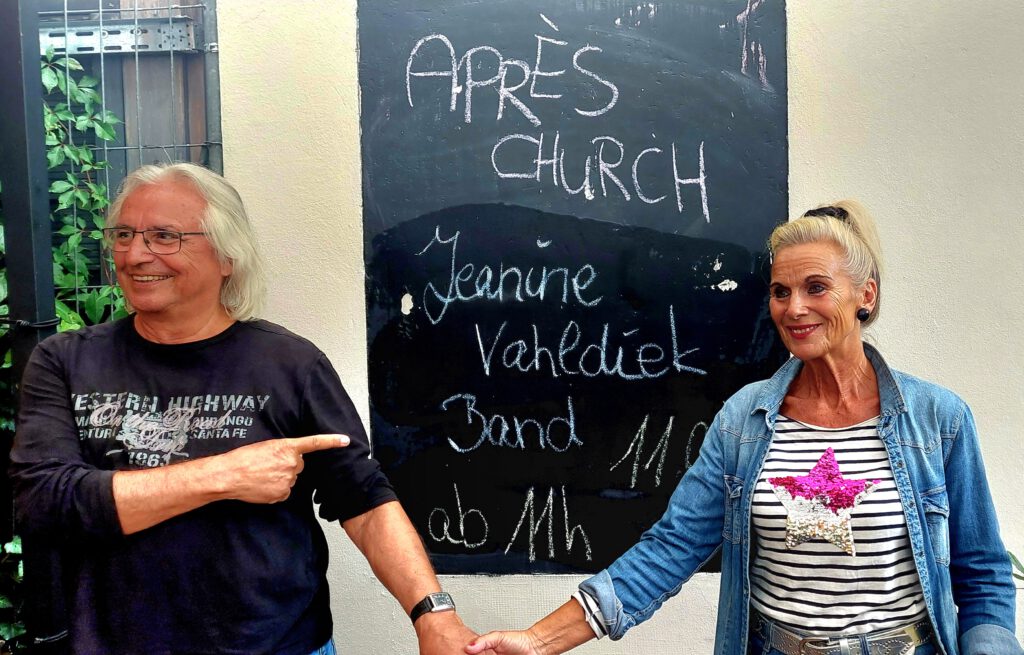 APRÈS
CHURCH
Jeanine
Vahldiek
Band
11.
ab 11h
WESTERN HIGHWAY
SANTA FE
1963